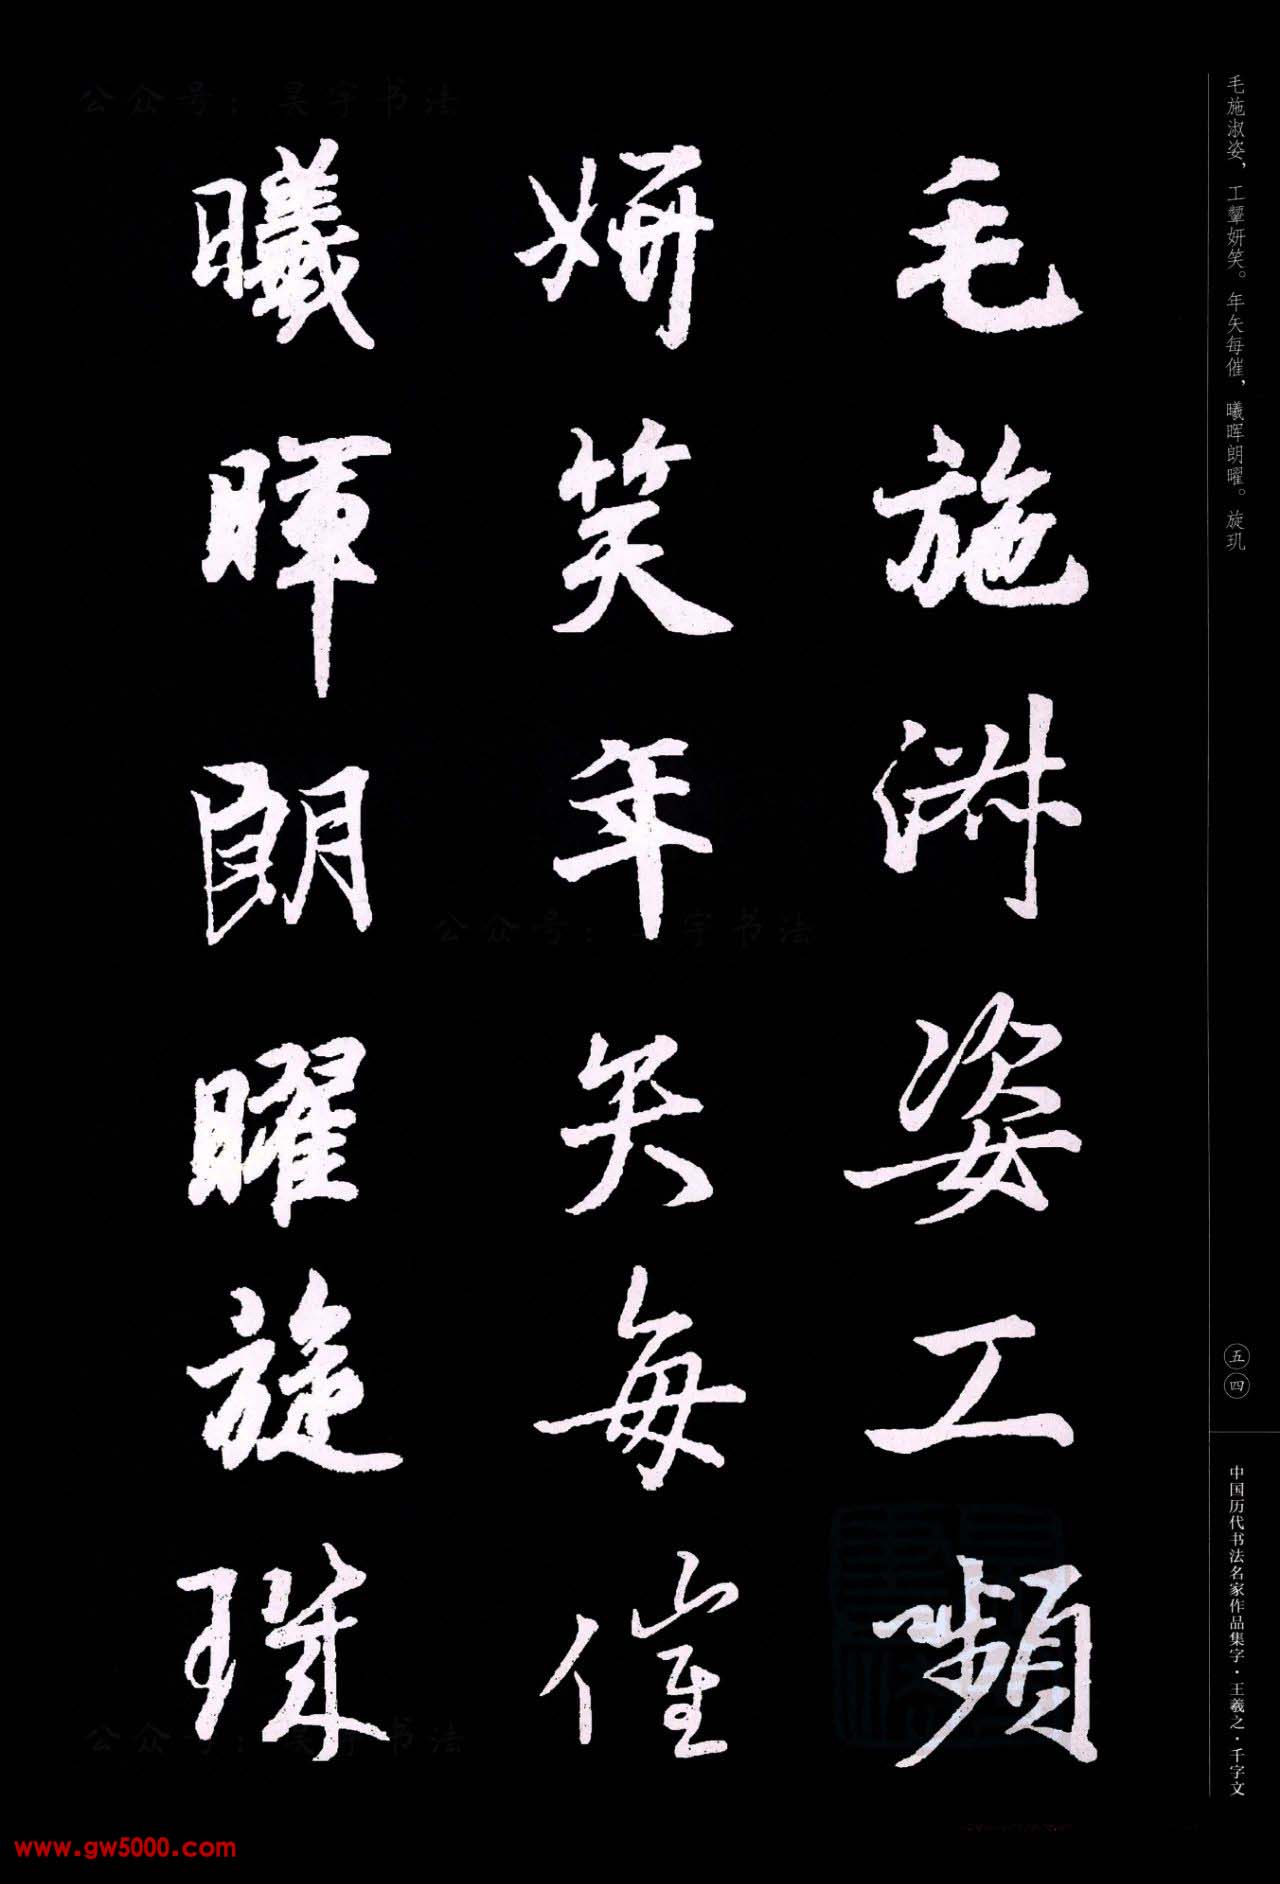 毛施淑姿工嚬
妍笑年矢每催
曦暉朗曜旋璣
毛施淑姿，工颦妍笑。年矢每催，曦晖朗曜。旋玑
五四
中国历代书法名家作品集字·王羲之·千字文
公众号：昊宇书法
公众号：宇书法
公众号：书法
www.gw5000.com